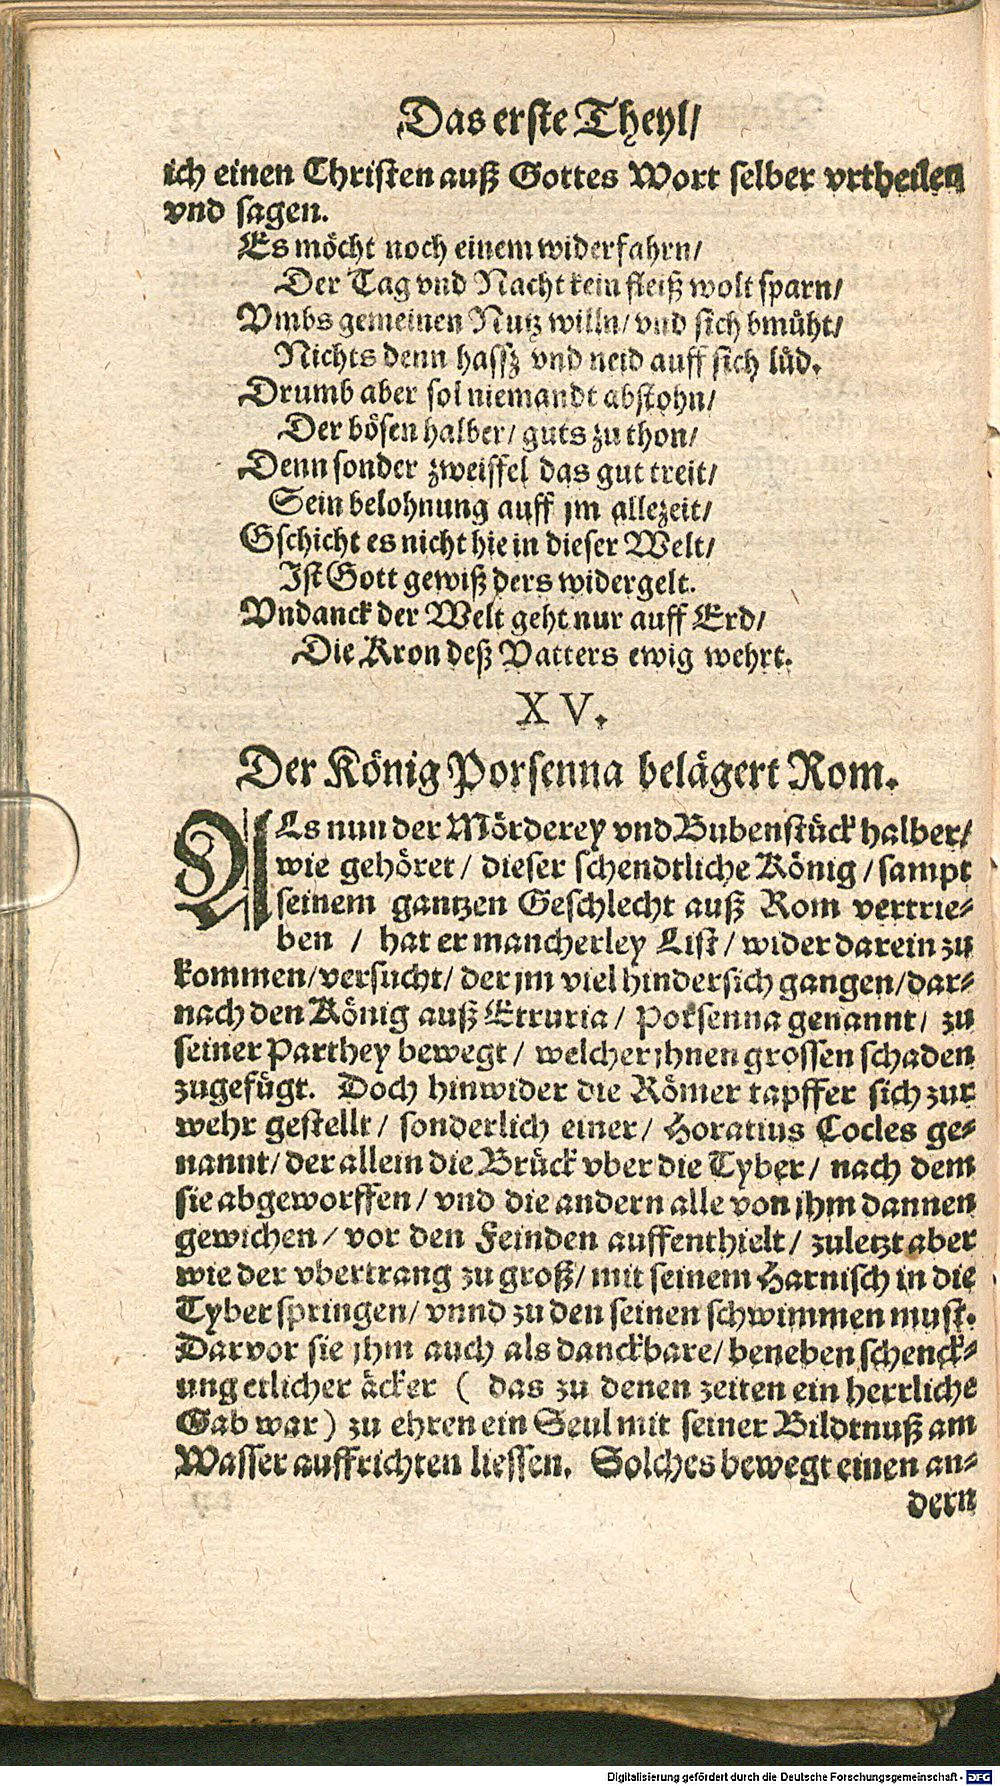 Das erste Theyl/
ich einen Christen auß Gottes Wort selber vrtheilen
vnd sagen.
Es möcht noch einem widerfahrn/
Der Tag vnd Nacht kein fleiß wolt sparn/
Vmbs gemeinen Nutz willn/ vnd sich bmüht/
Nichts denn hassz vnd neid auff sich lüd.
Drumb aber sol niemandt abstohn/
Der bösen halber/ guts zu thon/
Denn sonder zweiffel das gut treit/
Sein belohnung auff jm allezeit/
Gschicht es nicht hie in dieser Welt/
Ist Gott gewiß ders widergelt.
Vndanck der Welt geht nur auff Erd/
Die Kron deß Vatters ewig wehrt.
XV.
Der König Porsenna belägert Rom.
ALs nun der Mörderey vnd Bubenstück halber/
wie gehöret/ dieser schendtliche König/ sampt
seinem gantzen Geschlecht auß Rom vertrie-
ben / hat er mancherley List/ wider darein zu
kommen/ versucht/ der jm viel hindersich gangen/ dar-
nach den König auß Etruria/ Porsenna genannt/ zu
seiner Parthey bewegt/ welcher jhnen grossen schaden
zugefügt. Doch hinwider die Römer tapffer sich zur
wehr gestellt/ sonderlich einer/ Horatius Cocles ge-
nannt/ der allein die Brück vber die Tyber/ nach dem
sie abgeworffen/ vnd die andern alle von jhm dannen
gewichen/ vor den Feinden auffenthielt/ zuletzt aber
wie der vbertrang zu groß/ mit seinem Harnisch in die
Tyber springen/ vnnd zu den seinen schwimmen must.
Darvor sie jhm auch als danckbare/ beneben schenck-
ung etlicher äcker ( das zu denen zeiten ein herrliche
Gab war) zu ehren ein Seul mit seiner Bildtnuß am
Wasser auffrichten liessen. Solches bewegt einen an-
dern
Digitalisierung gefördert durch die Deutsche Forschungsgemeinschaft - DFG